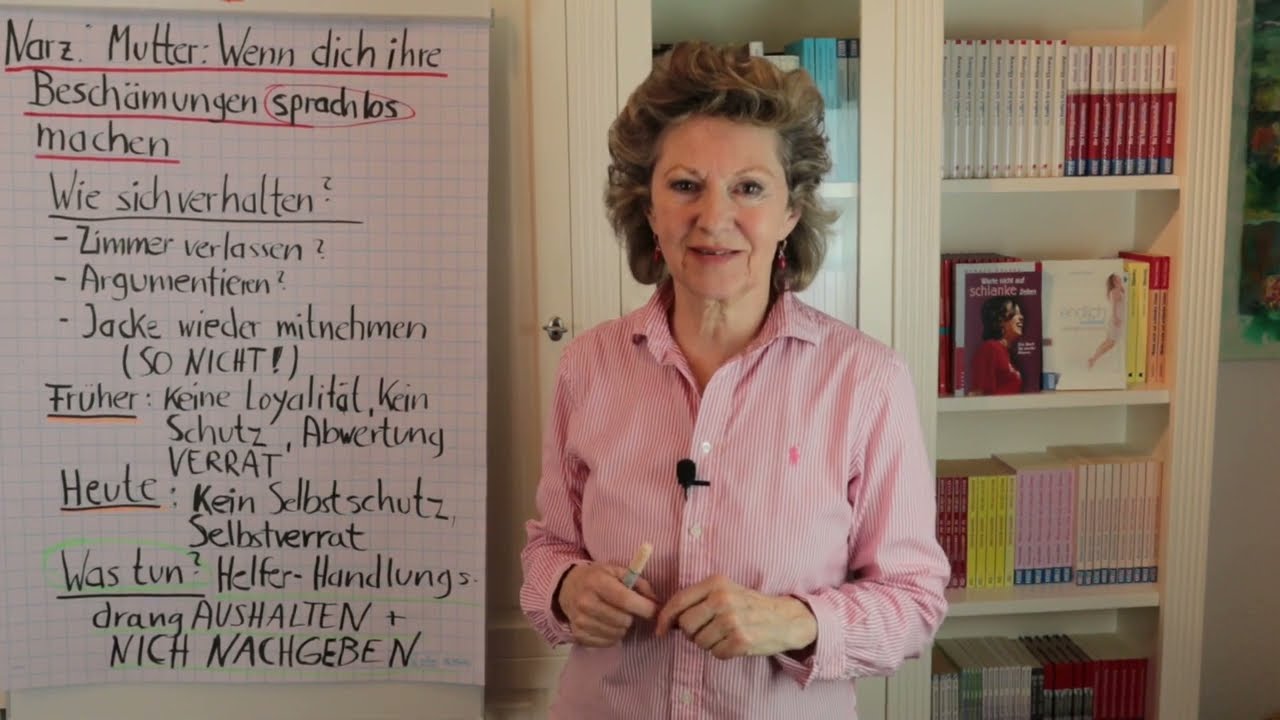 Narz. Mutter: Wenn dich ihre
Beschämungen sprachlos
machen
Wie sich verhalten?
- Zimmer verlassen?
- Argumentieren?
- Jacke wieder mitnehmen
(SO NICHT!)
Früher: Keine Loyalität, Kein
Schutz, Abwertung
VERRAT
Heute: Kein Selbstschutz,
Selbstverrat
Was tun? Helfer-Handlungs-
drang AUSHALTEN +
NICH NACHGEBEN
Warte nicht auf
schlanke Zeiten
endlich